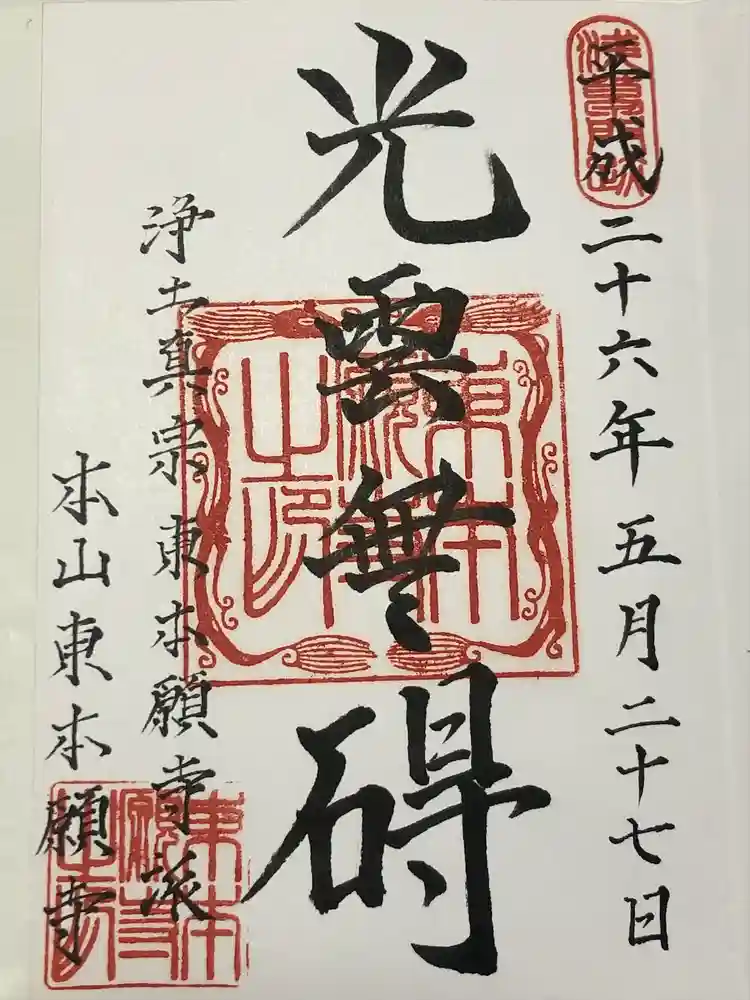 平成二十六年五月二十七日
光雲無碍
浄土真宗東本願寺派
本山東本願寺
東本願寺之印